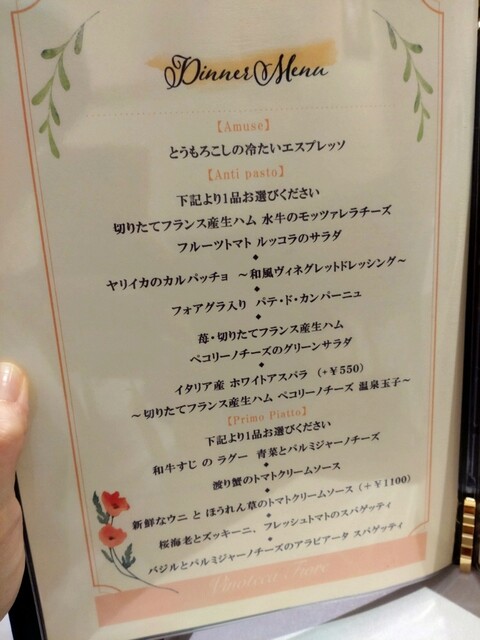 Dinner Menu
【Amuse】
とうもろこしの冷たいエスプレッソ
【Anti pasto】
下記より1品お選びください
切りたてフランス産生ハム 水牛のモッツァレラチーズ
フルーツトマト ルッコラのサラダ
◆
ヤリイカのカルパッチョ ～和風ヴィネグレットドレッシング～
◆
フォアグラ入り パテ・ド・カンパーニュ
◆
苺・切りたてフランス産生ハム
ペコリーノチーズのグリーンサラダ
◆
イタリア産 ホワイトアスパラ (+￥550)
～切りたてフランス産生ハム ペコリーノチーズ 温泉玉子～
【Primo Piatto】
下記より1品お選びください
和牛すじ の ラグー 青菜とパルミジャーノチーズ
◆
渡り蟹のトマトクリームソース
◆
新鮮なウニ と ほうれん草のトマトクリームソース (+￥1100)
◆
桜海老とズッキーニ、フレッシュトマトのスパゲッティ
◆
バジルとパルミジャーノチーズのアラビアータ スパゲッティ
Vinoteca Fiore